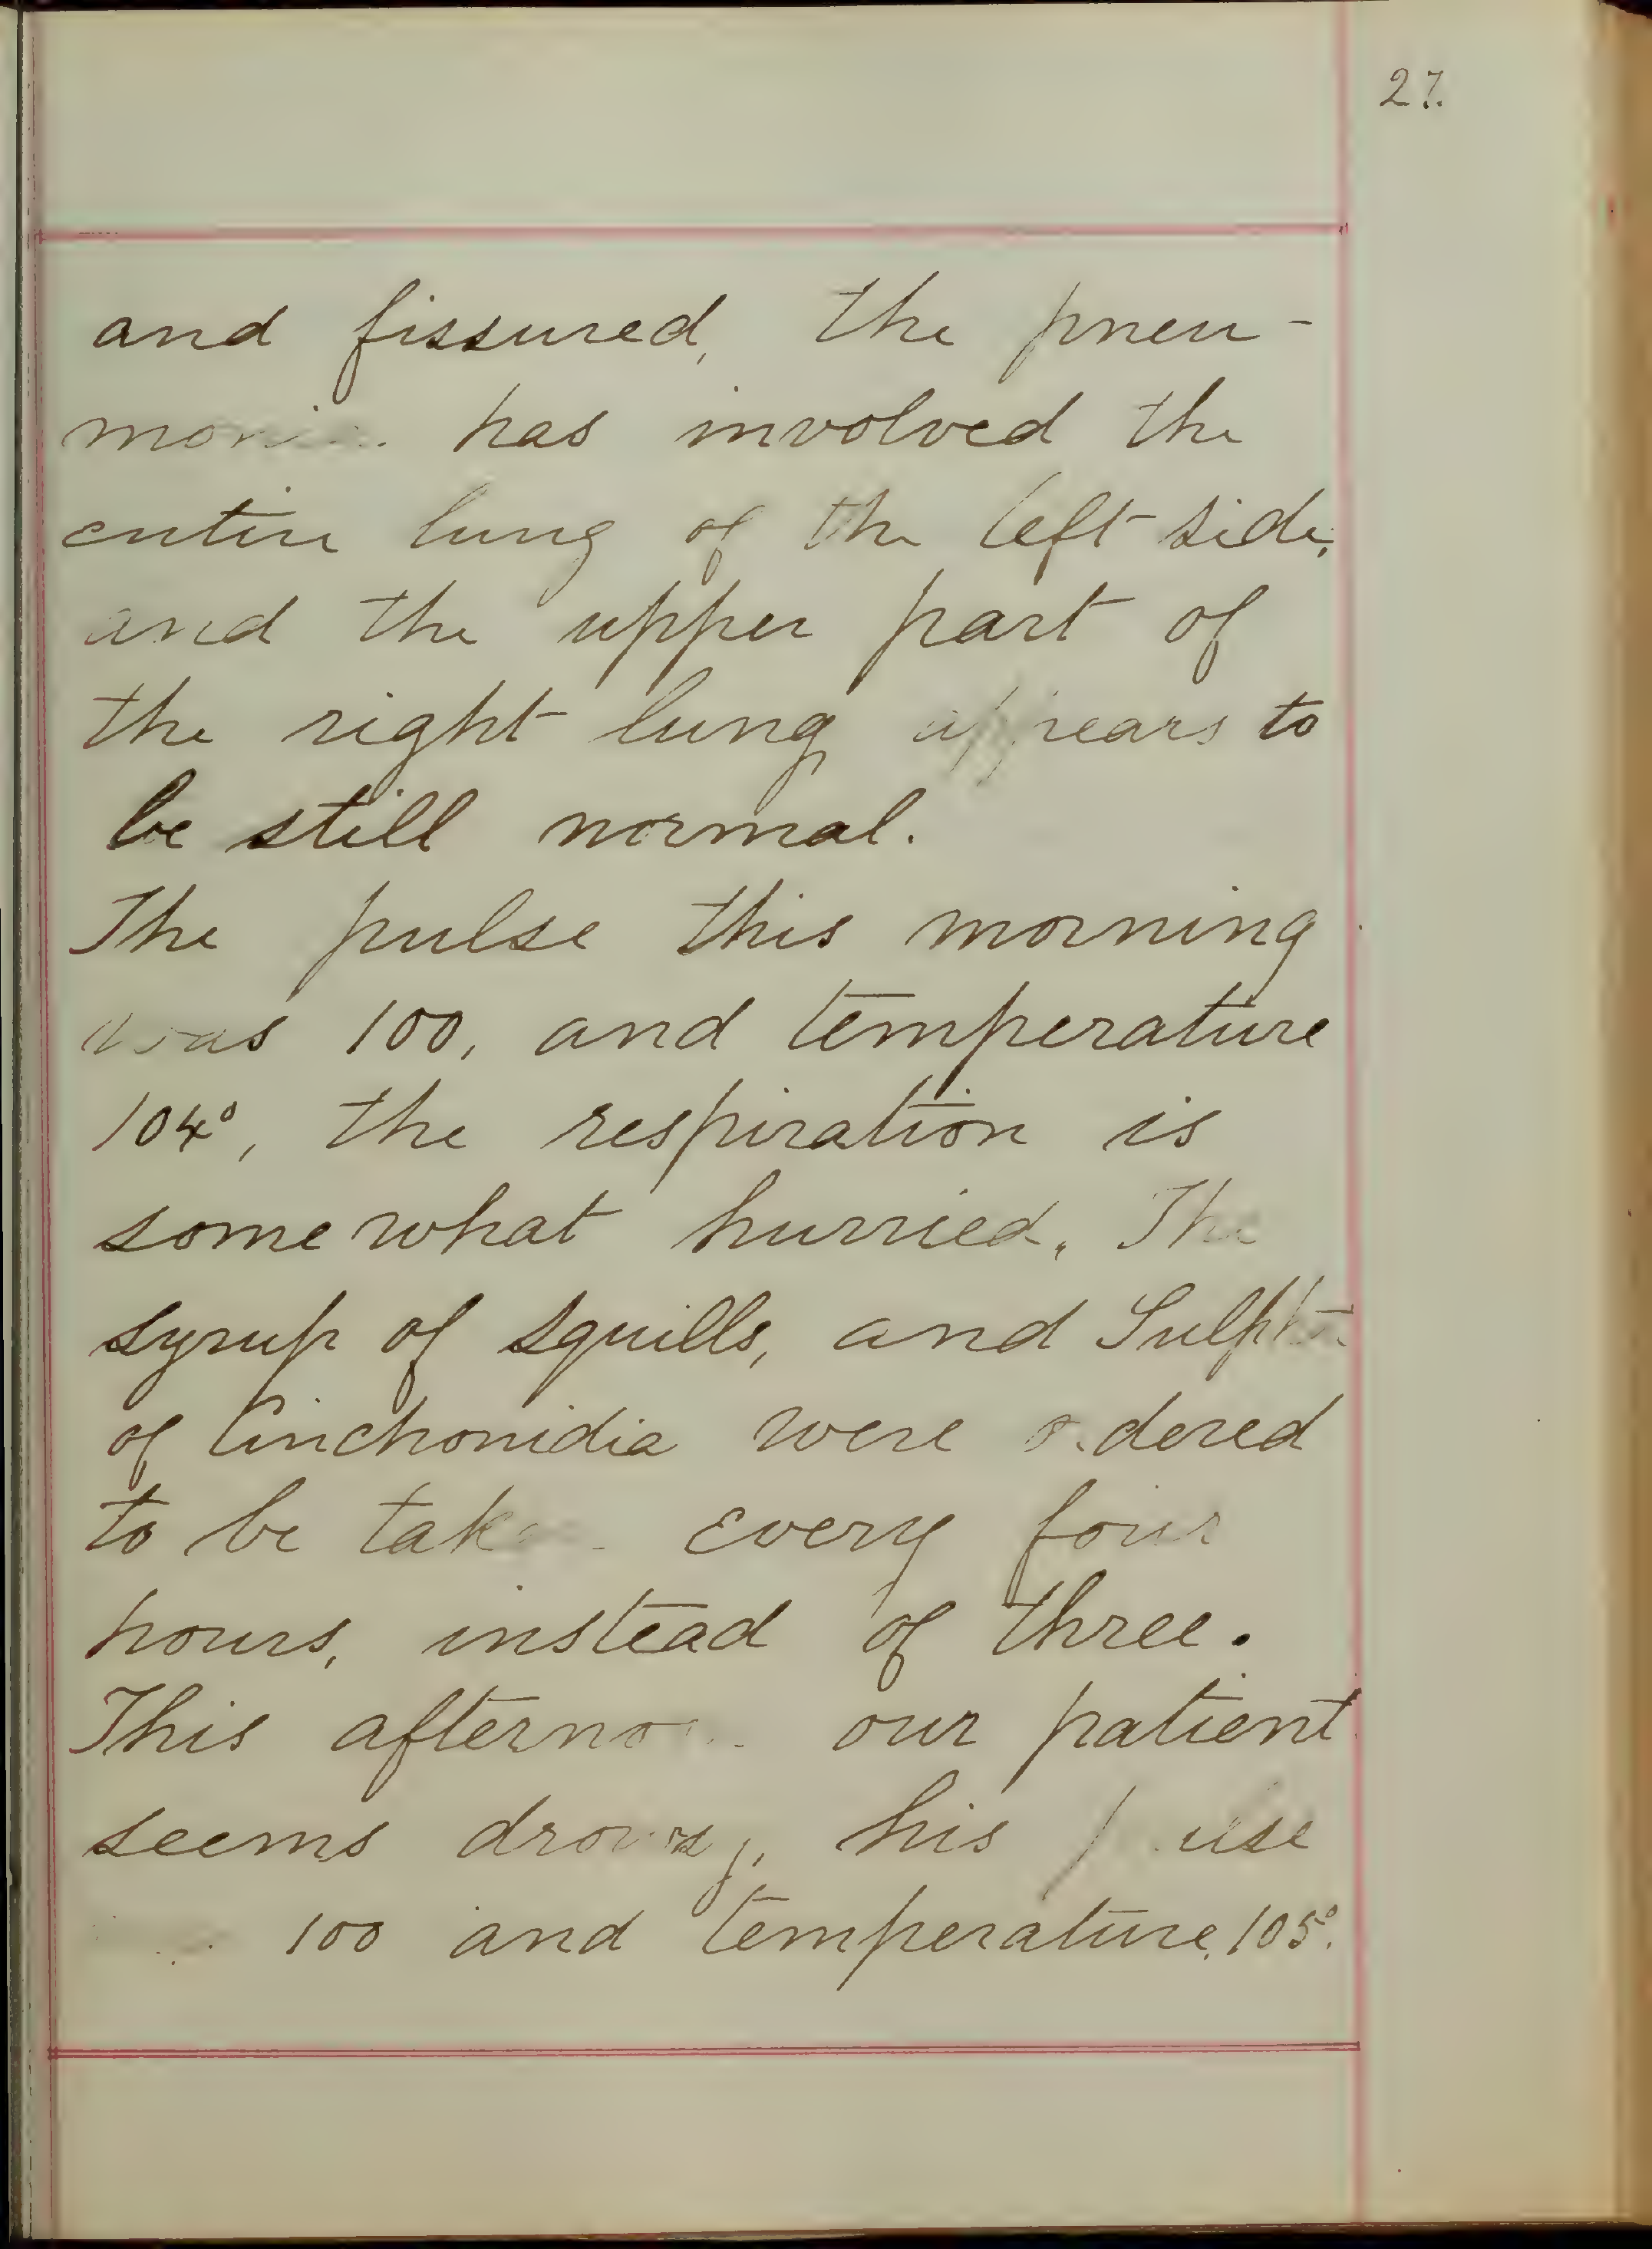 27.
and fissured, the pneu-
monia has involved the
entire lung of the left side,
and the upper part of
the right lung appears to
be still normal.
The pulse this morning
was 100, and temperature
104°, the respiration is
somewhat hurried. The
syrup of squills, and Sulphate
of Cinchonidia were ordered
to be taken every four
hours, instead of three.
This afternoon our patient
seems drowsy, his pulse
100 and temperature, 105°.